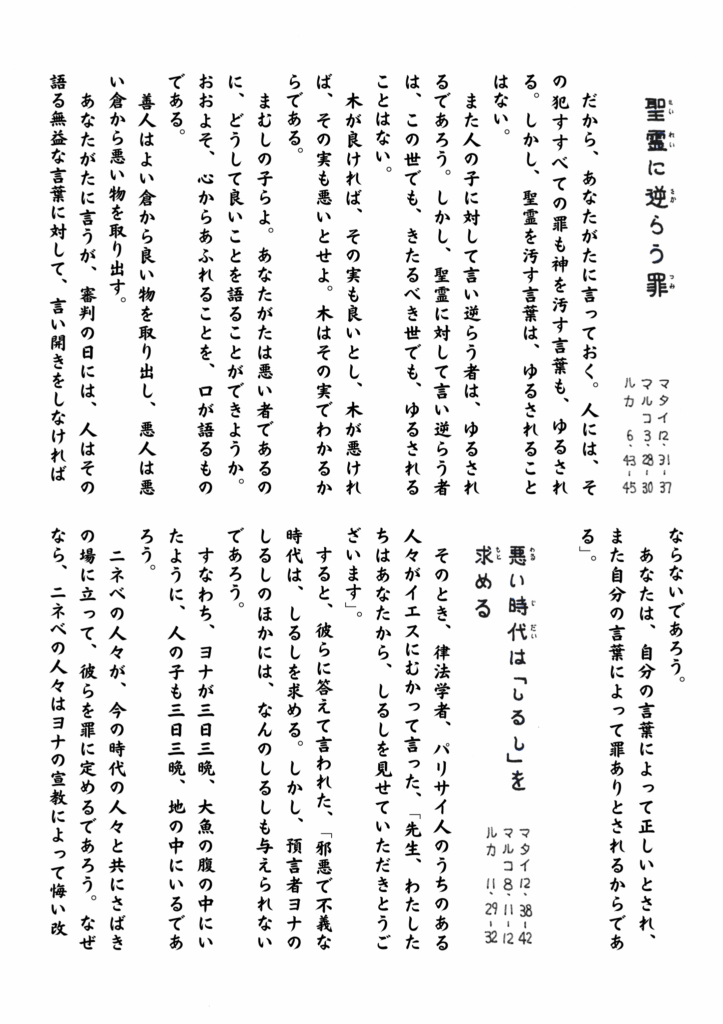 聖霊に逆らう罪
せい れい さか つみ
マタイ 12、31-37
マルコ 3、28-30
ルカ 6、43-45
だから、あなたがたに言っておく。人には、そ
の犯すすべての罪も神を汚す言葉も、ゆるされ
る。しかし、聖霊を汚す言葉は、ゆるされること
はない。
また人の子に対して言い逆らう者は、ゆるされ
るであろう。しかし、聖霊に対して言い逆らう者
は、この世でも、きたるべき世でも、ゆるされる
ことはない。
木が良ければ、その実も良いとし、木が悪けれ
ば、その実も悪いとせよ。木はその実でわかるか
らである。
まむしの子らよ。あなたがたは悪い者であるの
に、どうして良いことを語ることができようか。
おおよそ、心からあふれることを、口が語るもの
である。
善人はよい倉から良い物を取り出し、悪人は悪
い倉から悪い物を取り出す。
あなたがたに言うが、審判の日には、人はその
語る無益な言葉に対して、言い開きをしなければ
ならないであろう。
あなたは、自分の言葉によって正しいとされ、
また自分の言葉によって罪ありとされるからであ
る」。
悪い時代は「しるし」を
わる じ だい
求める
もと
マタイ 12、38-42
マルコ 8、11-12
ルカ 11、29-32
そのとき、律法学者、パリサイ人のうちのある
人々がイエスにむかって言った、「先生、わたした
ちはあなたから、しるしを見せていただきとうご
ざいます」。
すると、彼らに答えて言われた、「邪悪で不義な
時代は、しるしを求める。しかし、預言者ヨナの
しるしのほかには、なんのしるしも与えられない
であろう。
すなわち、ヨナが三日三晩、大魚の腹の中にい
たように、人の子も三日三晩、地の中にいるであ
ろう。
ニネベの人々が、今の時代の人々と共にさばき
の場に立って、彼らを罪に定めるであろう。なぜ
なら、ニネベの人々はヨナの宣教によって悔い改